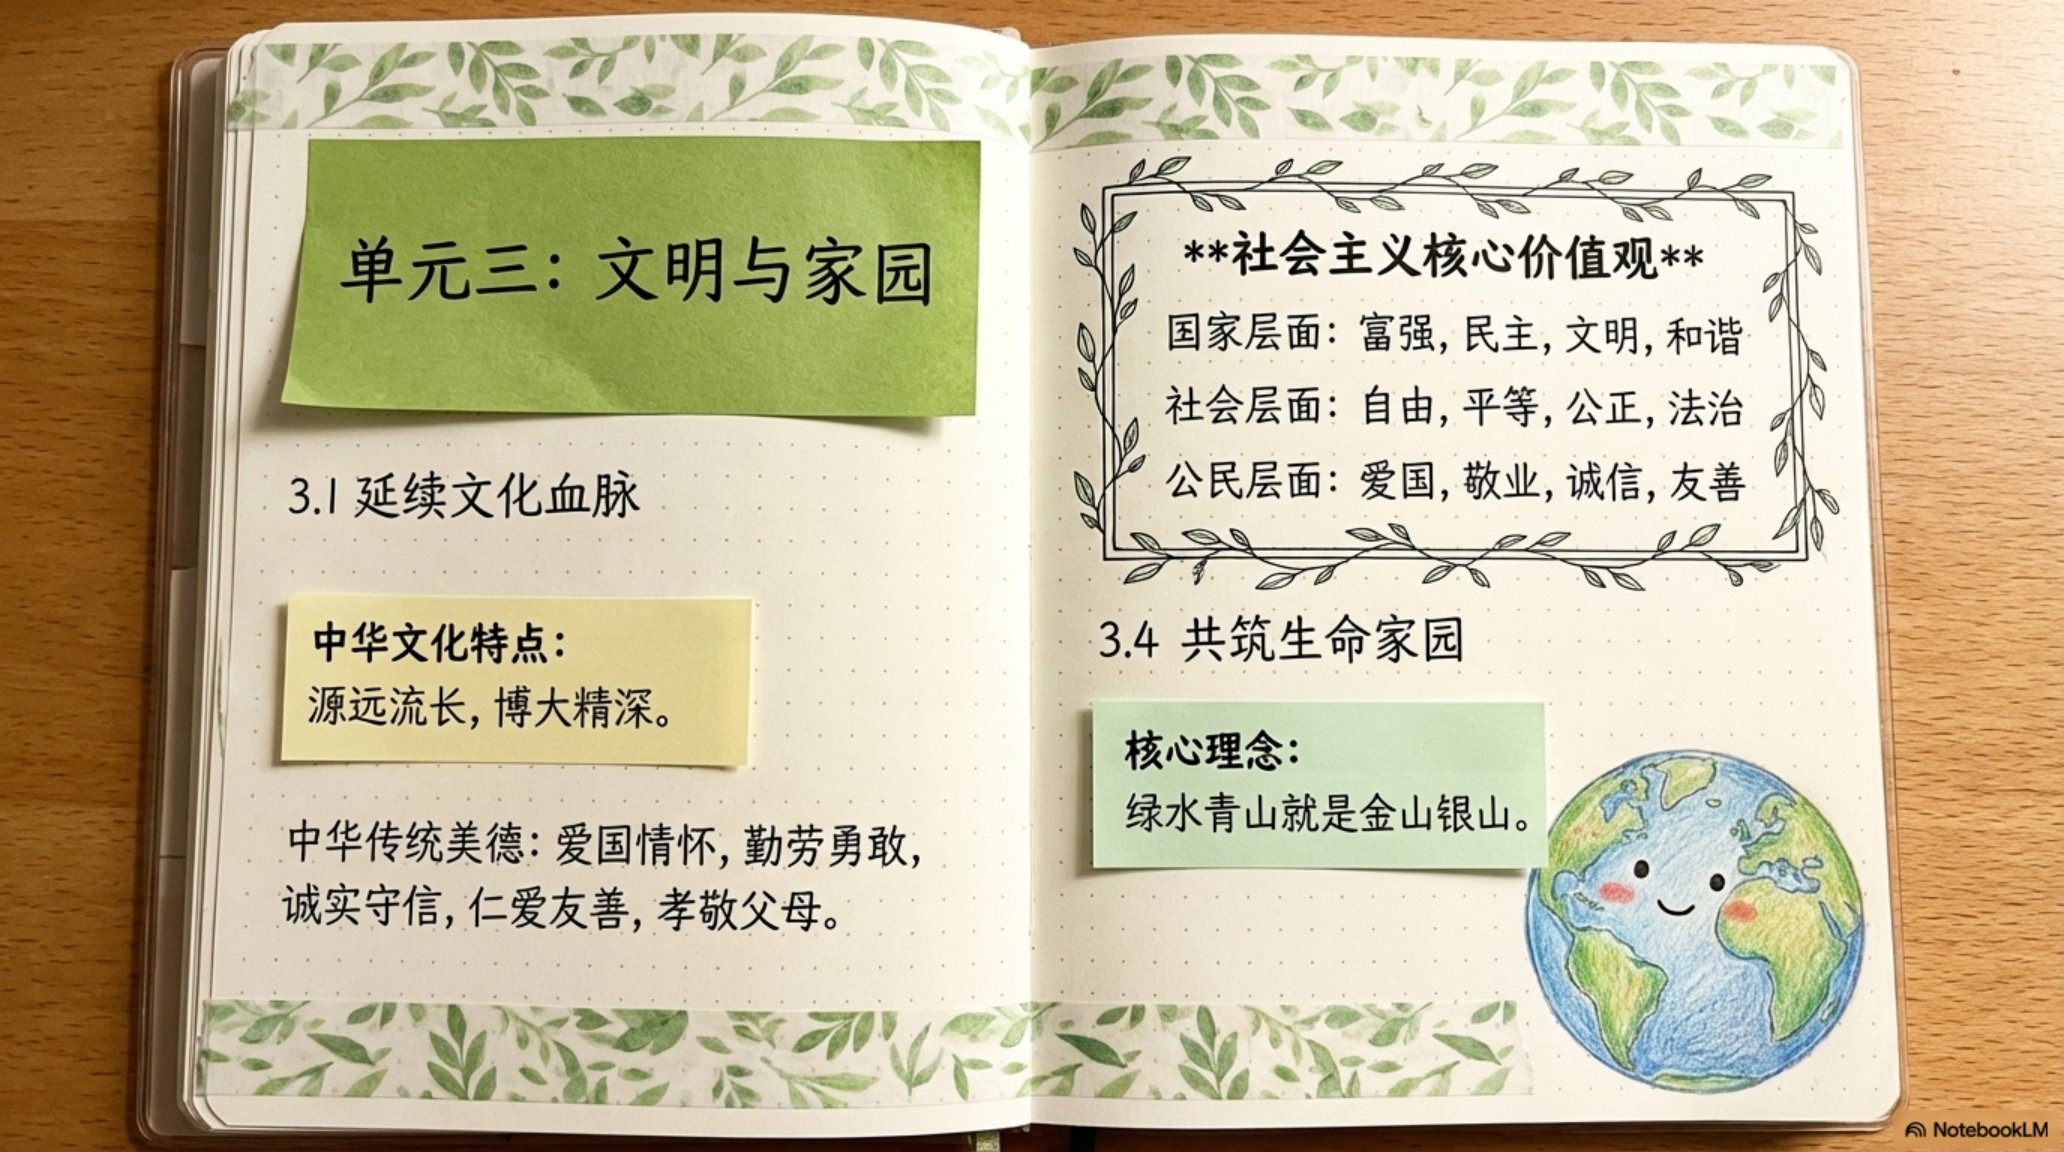 单元三：文明与家园
3.1 延续文化血脉
中华文化特点：
源远流长, 博大精深。
中华传统美德：爱国情怀, 勤劳勇敢,
诚实守信, 仁爱友善, 孝敬父母。
**社会主义核心价值观**
国家层面：富强, 民主, 文明, 和谐
社会层面：自由, 平等, 公正, 法治
公民层面：爱国, 敬业, 诚信, 友善
3.4 共筑生命家园
核心理念：
绿水青山就是金山银山。
NotebookLM